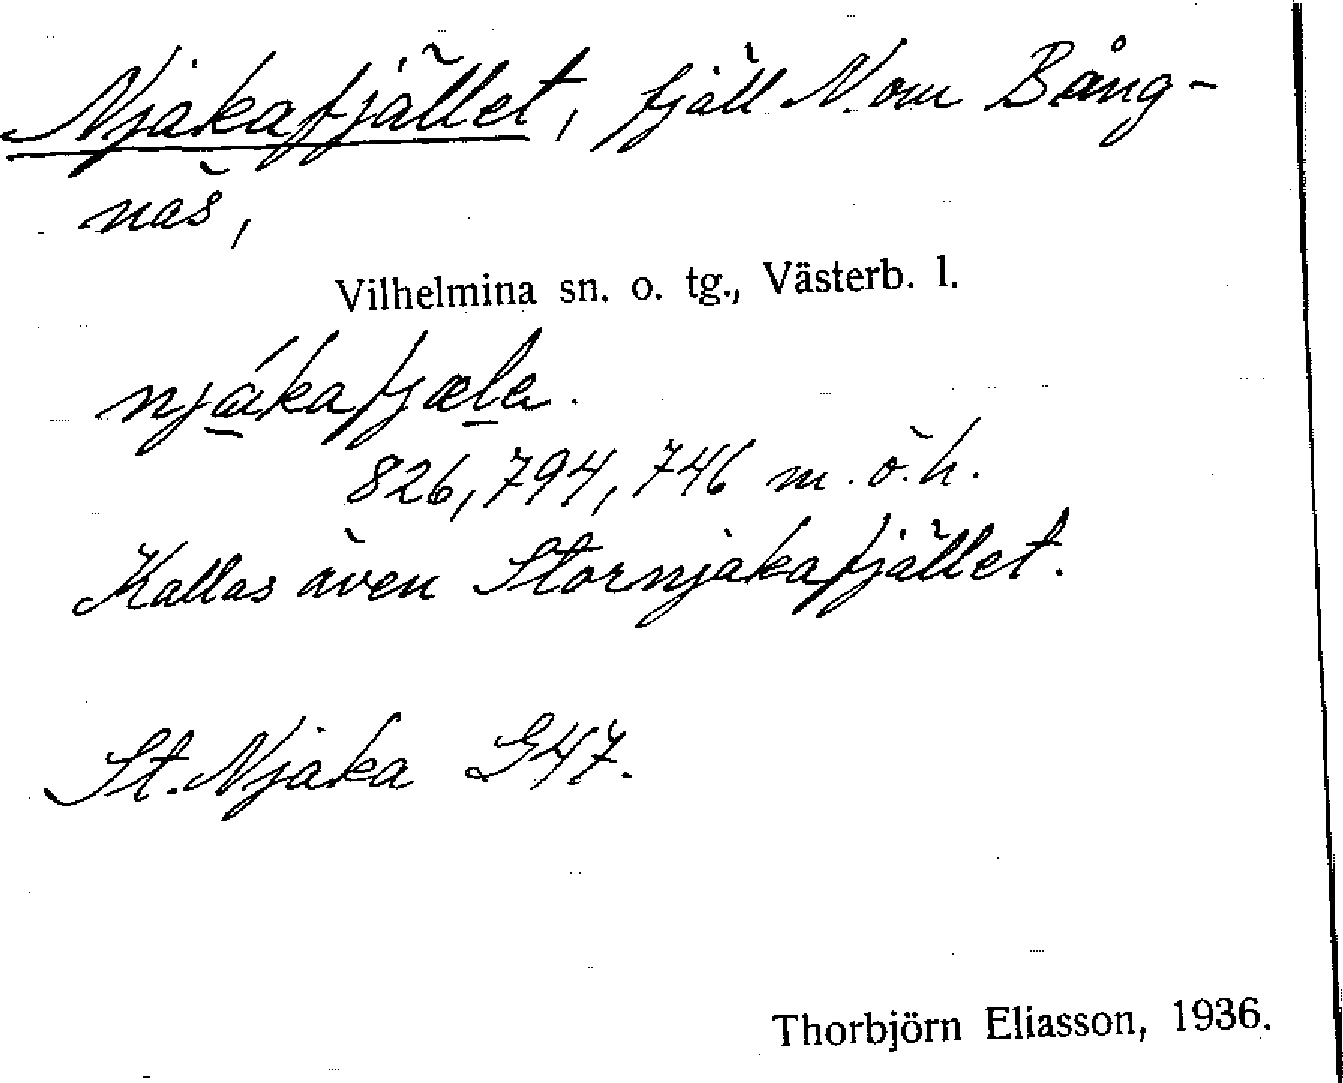 Njakafjället, fjäll N. om Bång-
näs,
Vilhelmina sn. o. tg., Västerb. l.
njákafjæla.
826, 794, 746 m. ö. h.
Kallas även Stornjakafjället.
St. Njaka G47.
Thorbjörn Eliasson, 1936.